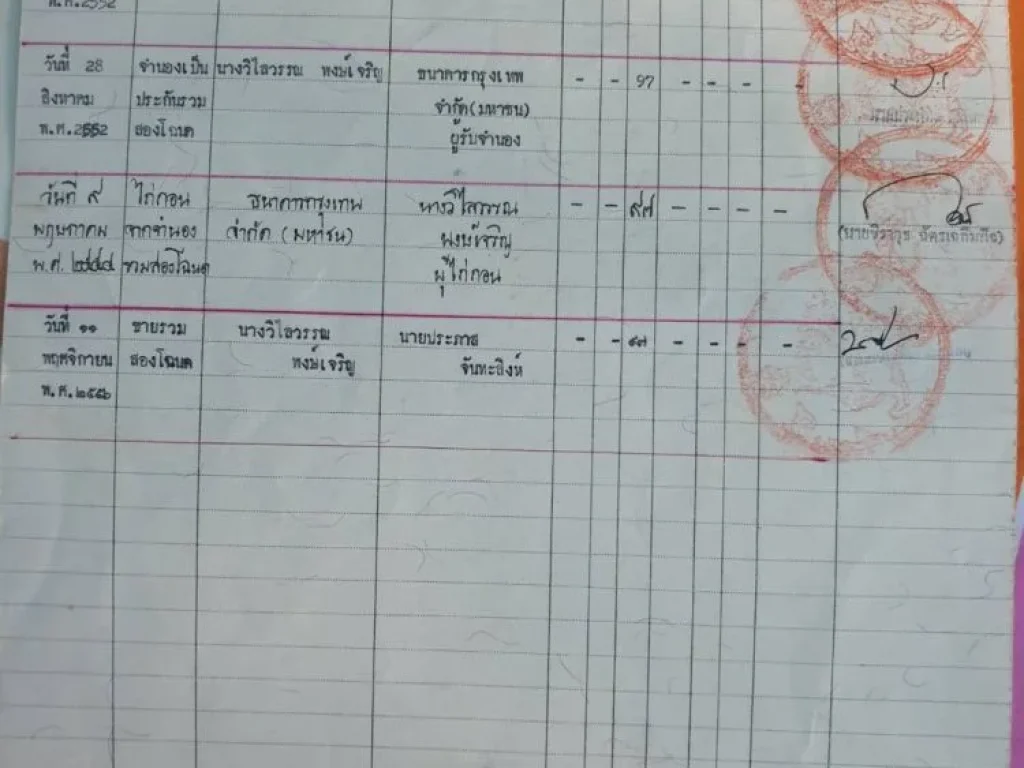 พ.ศ.2552
วันที่ 28 จำนองเป็น นางวิไลวรรณ พงษ์เจริญ ธนาคารกรุงเทพ - - 97 - - - -
สิงหาคม ประกันรวม จำกัด(มหาชน)
พ.ศ.2552 สองโฉนด ผู้รับจำนอง
วันที่ ๙ ไถ่ถอน ธนาคารกรุงเทพ นางวิไลวรรณ - - ๙๗ - - - -
พฤษภาคม จากจำนอง จำกัด (มหาชน) พงษ์เจริญ
พ.ศ. ๒๕๕๕ รวมสองโฉนด ผู้ไถ่ถอน
วันที่ ๑๑ ขายรวม นางวิไลวรรณ นายประภาส - - ๙๗ - - - -
พฤศจิกายน สองโฉนด พงษ์เจริญ จันทะสิงห์
พ.ศ.๒๕๕๖